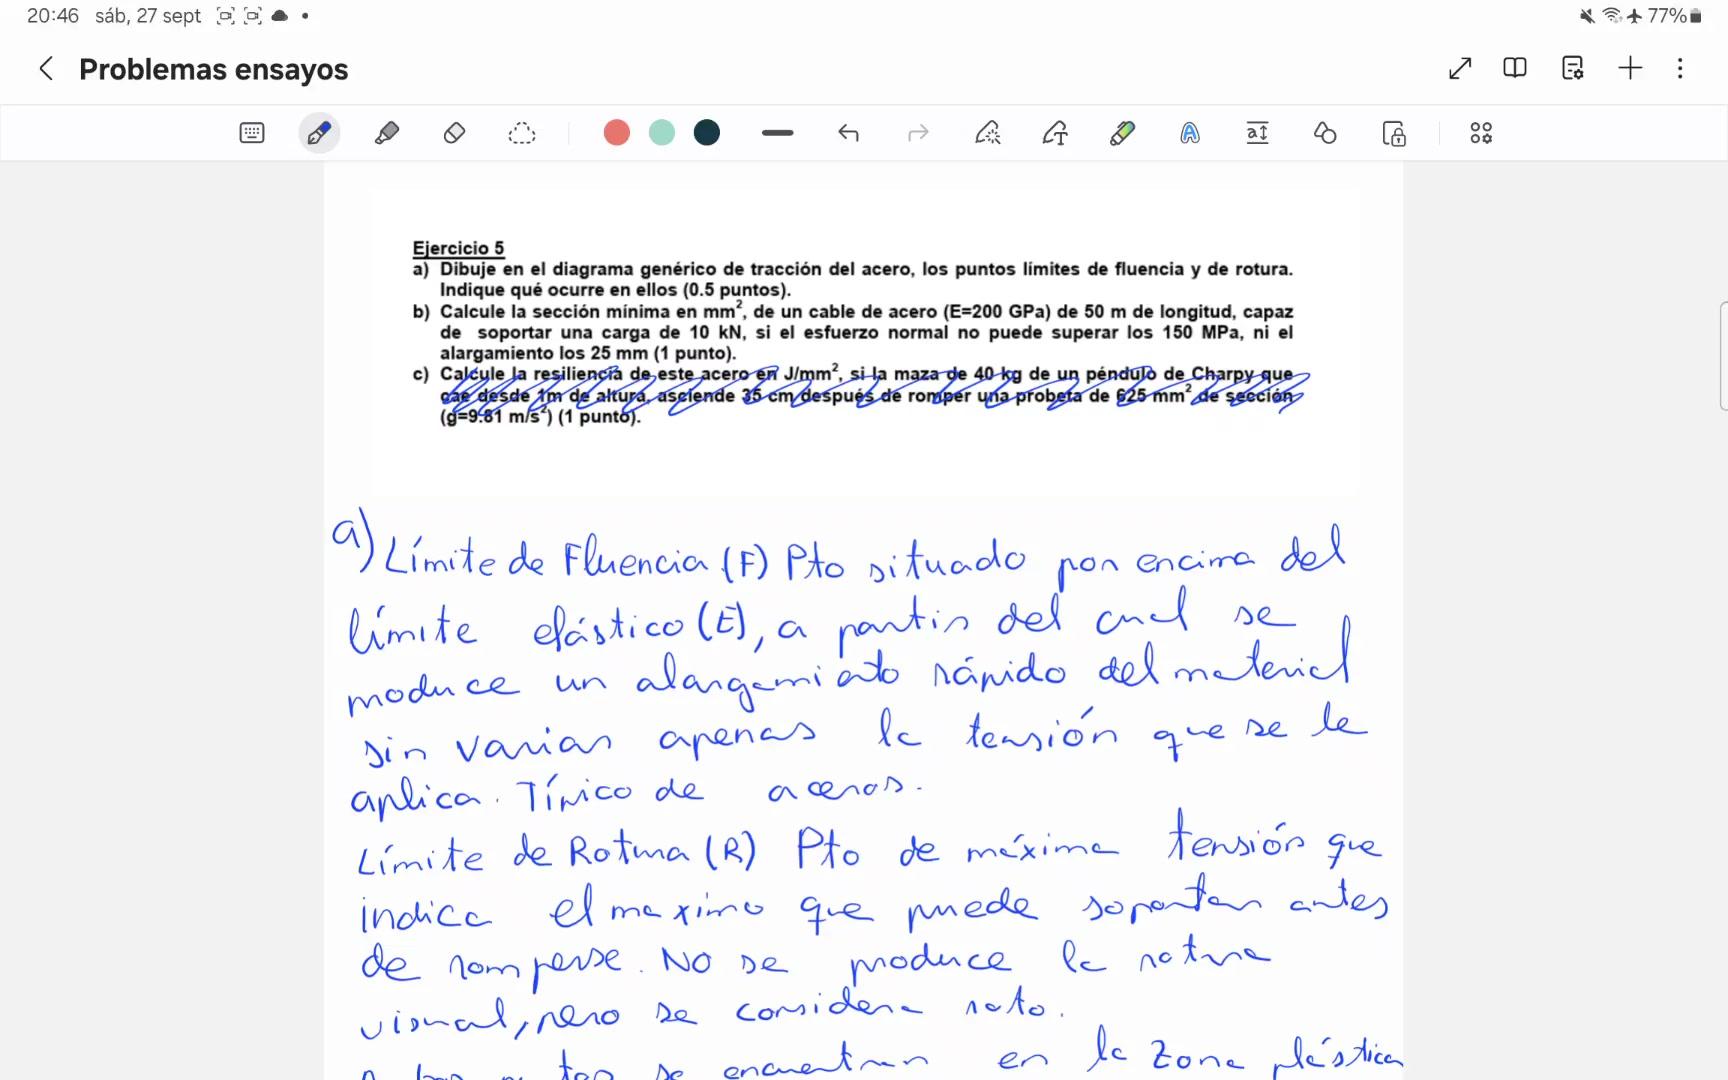 20:46 sáb, 27 sept
77%
Problemas ensayos
Ejercicio 5
a) Dibuje en el diagrama genérico de tracción del acero, los puntos límites de fluencia y de rotura.
Indique qué ocurre en ellos (0.5 puntos).
b) Calcule la sección mínima en mm², de un cable de acero (E=200 GPa) de 50 m de longitud, capaz
de soportar una carga de 10 kN, si el esfuerzo normal no puede superar los 150 MPa, ni el
alargamiento los 25 mm (1 punto).
c) Calcule la resiliencia de este acero en J/mm², si la maza de 40 kg de un péndulo de Charpy que
cae desde 1m de altura, asciende 35 cm después de romper una probeta de 625 mm² de sección
(g=9.81 m/s²) (1 punto).
a) Límite de Fluencia (F) Pto situado por encima del
límite elástico (E), a partir del cual se
produce un alargamiento rápido del material
sin variar apenas la tensión que se le
aplica. Típico de aceros.
Límite de Rotura (R) Pto de máxima tensión que
indica el maximo que puede soportar antes
de romperse. No se produce la rotura
visual, pero se considera roto.
se encuentran en la zona plástica